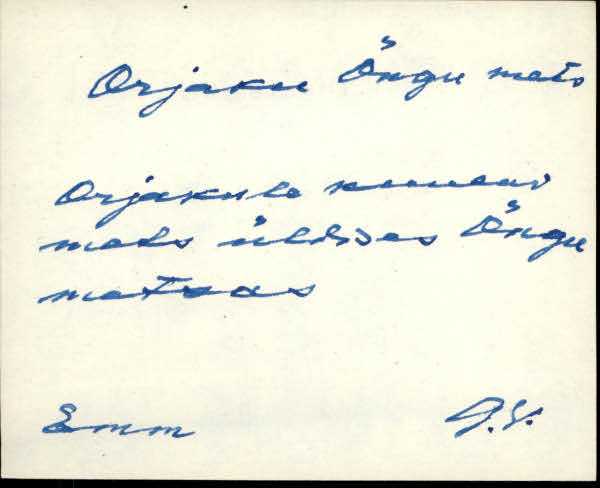 Orjaku Õngu mets
Orjakule kuuluv
mets üldises Õngu
metsas
Emm